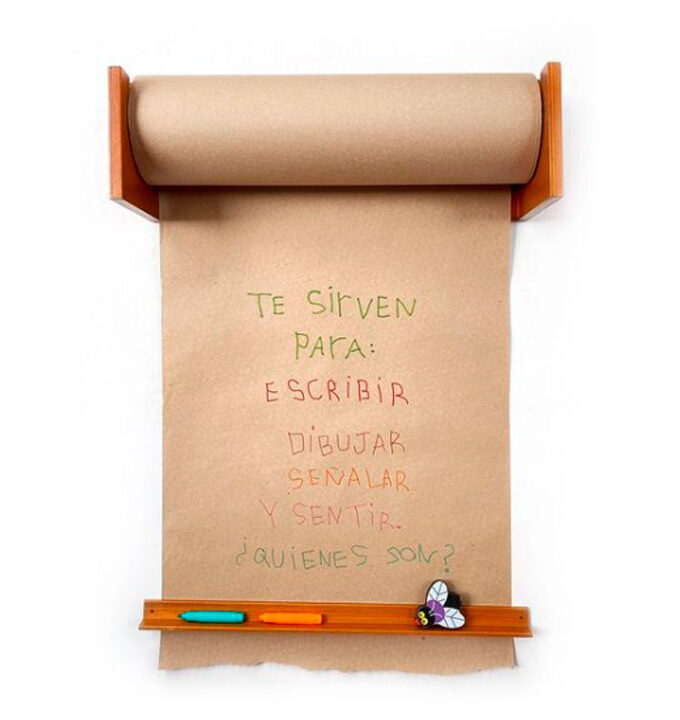 TE SirVEN
ParA:
ESCRIBIR
DIBUJAR
SEÑALAR
Y SENTIR.
¿QUIENES SON?